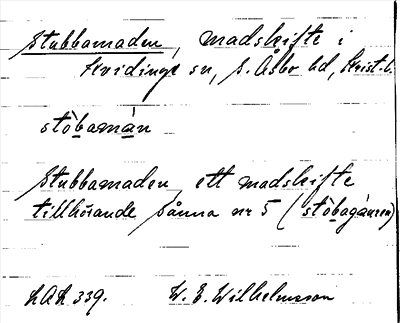 Stubbamaden, madskifte i
Kvidinge sn, S. Åsbo hd, Krist.l.
stòbamán
Stubbamaden, ett madskifte
tillhörande Sånna nr 5 (stòbagáuren)
LAL 339. W. E. Wilhelmsson